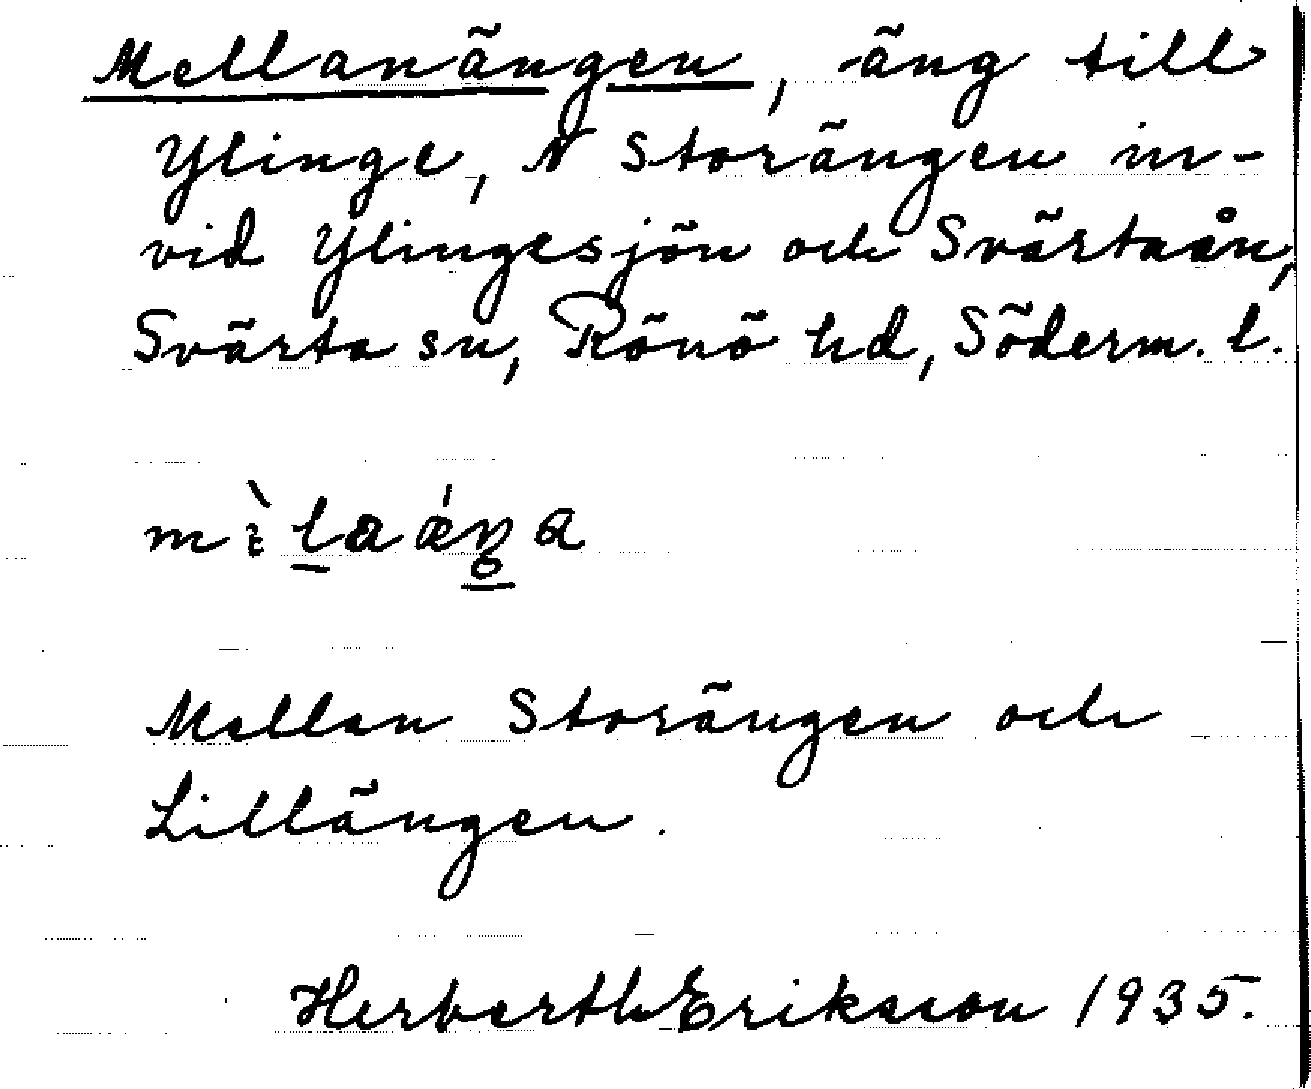 Mellanängen, -äng till
Ylinge, N Storängen in-
vid Ylingesjön och Svärtaån,
Svärta sn, Rönö hd, Söderm. l.
Mellan Storängen och
Lillängen.
Herberth Eriksson 1935.